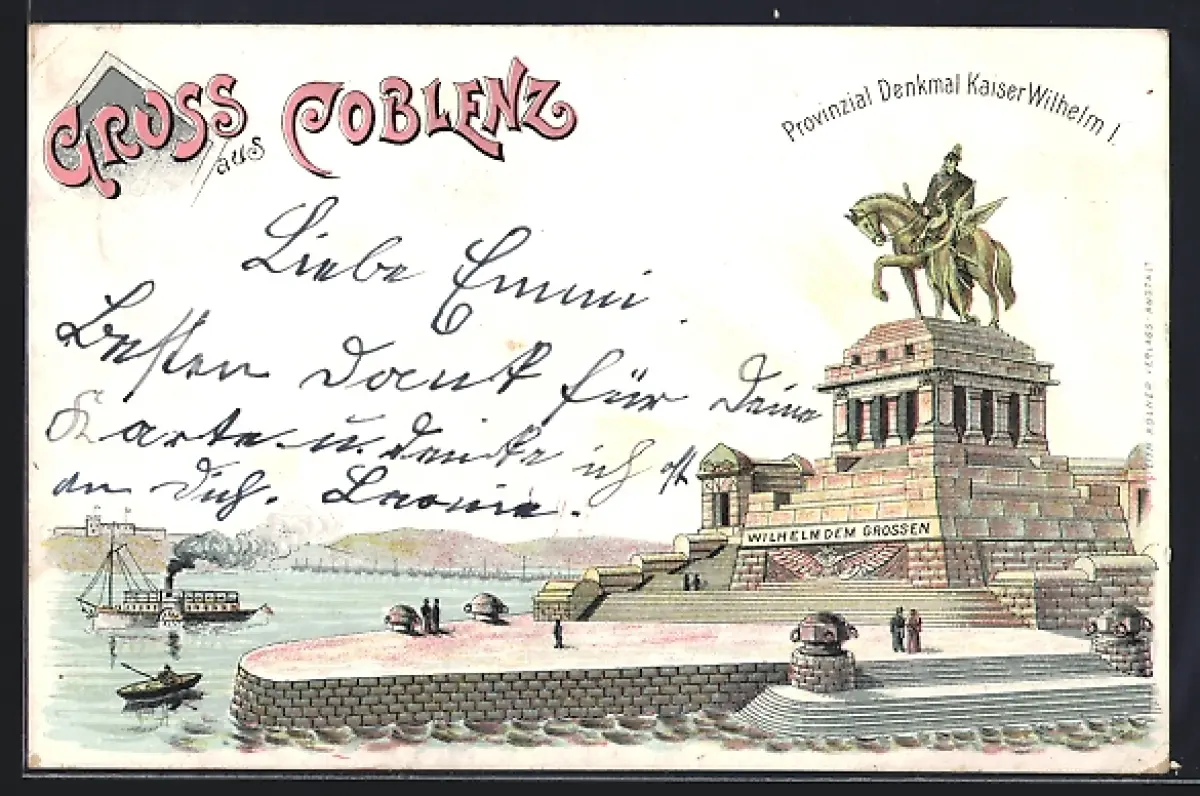 GRUSS aus COBLENZ
Provinzial Denkmal Kaiser Wilhelm I.
Liebe Emmi.
Besten Dank für Deine
Karte u. denke ich oft
an Dich. Leonie.
WILHELM DEM GROSSEN
KÖLNER VERLAGS-ANSTALT